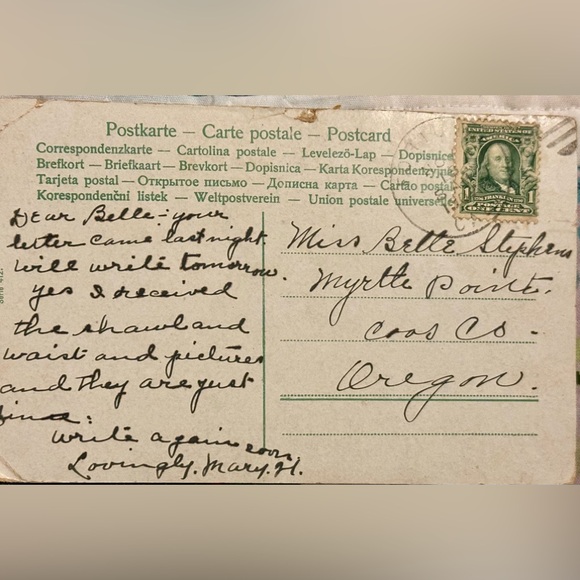 Postkarte – Carte postale – Postcard
Correspondenzkarte – Cartolina postale – Levelező-Lap – Dopisnice
Brefkort – Briefkaart – Brevkort – Dopisnica – Karta Korespondenzyjna
Tarjeta postal – Открытое письмо – Дописна карта – Cartão postal
Korespondenční listek – Weltpostverein – Union postale universelle
Dear Belle:- your
letter came last night.
will write tomorrow.
yes I received
the shawl and
waist and pictures
and they are just
fine:
write again soon
Lovingly. Mary. H.
Miss Belle Stephens
Myrtle Point.
Coos Co -
Oregon.
1
FRANKLIN